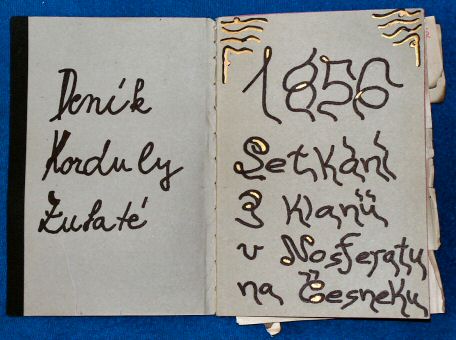 Deník
Korduly
Žulaté
1856
Setkání
3 klanů
v Nosferatu
na Česneku